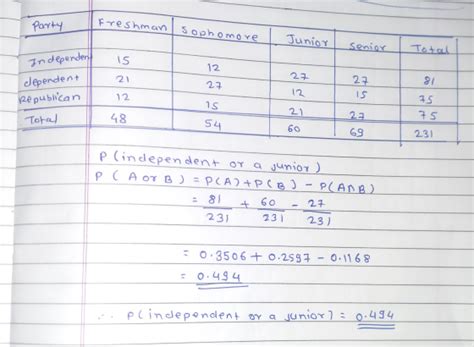 Party Freshman Sophomore Junior Senior Total
Independent 15 12 27 27 81
dependent 21 27 12 15 75
Republican 12 15 21 27 75
Total 48 54 60 69 231
P (independent or a junior)
P (A or B) = P(A) + P(B) - P(A∩B)
= 81/231 + 60/231 - 27/231
= 0.3506 + 0.2597 - 0.1168
= 0.494
∴ P(independent or a junior) = 0.494